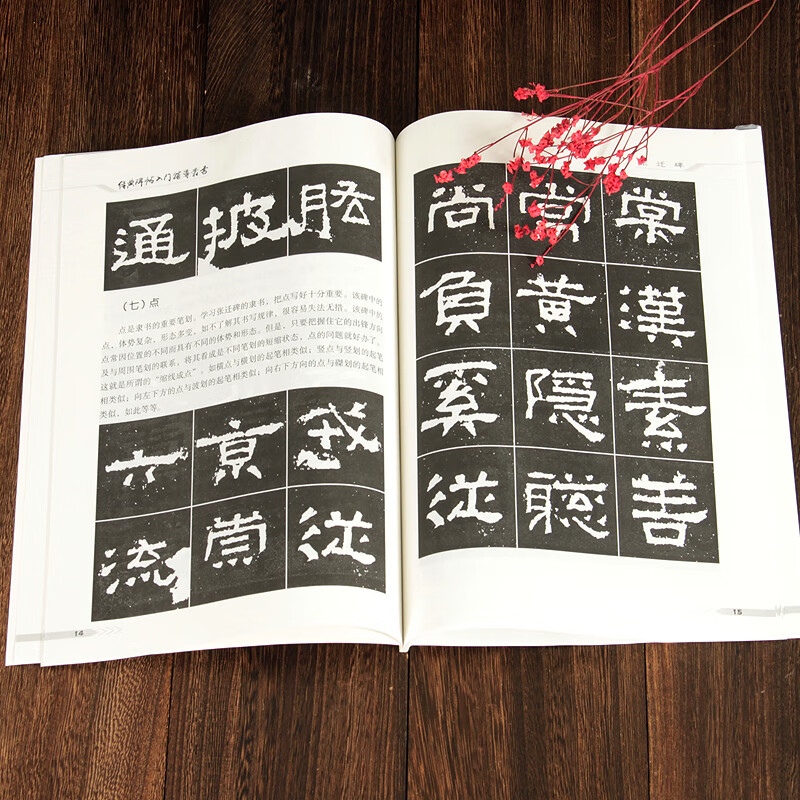 经典碑帖入门辅导丛书
通 披
（七）点
点是隶书的重要笔划。学习张迁碑的隶书，把点写好十分重要。该碑中的
点，体势复杂，形态多变，如不了解其书写规律，很容易失法无措。该碑中的
点常因位置的不同而具有不同的体势和形态。但是，只要把握住它的出锋方向
及与周围笔划的联系，将其看成是不同笔划的短缩状态，点的问题就好办了。
这就是所谓的“缩线成点”。如横点与横划的起笔相类似；竖点与竖划的起笔
相类似；向左下方的点与波划的起笔相类似；向右下方向的点与磔划的起笔相
类似，如此等等。
六 京 我
流 從
14
迁 碑
尚 賞 棠
負 黄 漢
奚 隱 素
從 聽 善
15